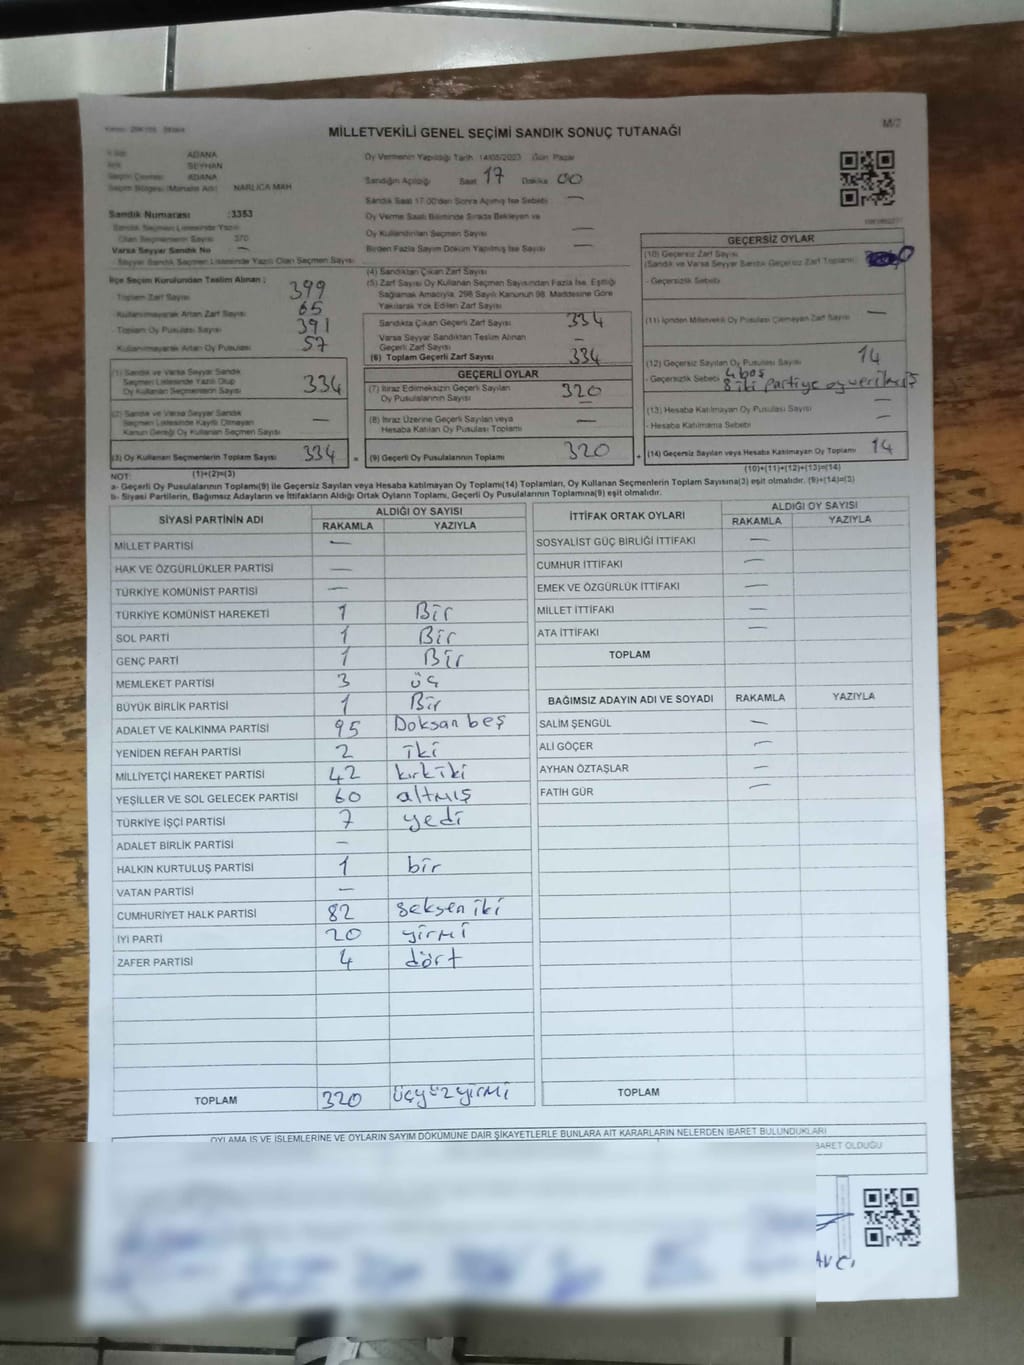 MİLLETVEKİLİ GENEL SEÇİMİ SANDIK SONUÇ TUTANAĞI
M/2
ADANA
SEYHAN
ADANA
NARLICA MAH
Oy Vermenin Yapıldığı Tarih 14/05/2023 Gün Pazar
Sandığın Açıldığı Saat 17 Dakika 00
Sandık Saat 17.00'den Sonra Açılmış İse Sebebi —
Oy Verme Saati Bitiminde Sırada Bekleyen ve
Oy Kullandırılan Seçmen Sayısı —
Birden Fazla Sayım Döküm Yapılmış İse Sayısı —
Sandık Numarası :3353
Sandık Seçmen Listesinde Yazılı
Olan Seçmenlerin Sayısı 370
Varsa Seyyar Sandık No —
Seyyar Sandık Seçmen Listesinde Yazılı Olan Seçmen Sayısı
İlçe Seçim Kurulundan Teslim Alınan :
Toplam Zarf Sayısı 399
Kullanılmayarak Artan Zarf Sayısı 65
Toplam Oy Pusulası Sayısı 391
Kullanılmayarak Artan Oy Pusulası 57
(1) Sandık ve Varsa Seyyar Sandık
Seçmen Listesinde Yazılı Olup
Oy Kullanan Seçmenlerin Sayısı 334
(2) Sandık ve Varsa Seyyar Sandık
Seçmen Listesinde Kayıtlı Olmayan
Kanun Gereği Oy Kullanan Seçmen Sayısı —
(3) Oy Kullanan Seçmenlerin Toplam Sayısı 334 =
(1)+(2)=(3)
(4) Sandıktan Çıkan Zarf Sayısı
(5) Zarf Sayısı Oy Kullanan Seçmen Sayısından Fazla İse, Eşitliği
Sağlamak Amacıyla, 298 Sayılı Kanunun 98. Maddesine Göre
Yakılarak Yok Edilen Zarf Sayısı
Sandıkta Çıkan Geçerli Zarf Sayısı 334
Varsa Seyyar Sandıktan Teslim Alınan
Geçerli Zarf Sayısı —
(6) Toplam Geçerli Zarf Sayısı 334
GEÇERLİ OYLAR
(7) İtiraz Edilmeksizin Geçerli Sayılan
Oy Pusulalarının Sayısı 320
(8) İtiraz Üzerine Geçerli Sayılan veya
Hesaba Katılan Oy Pusulası Toplamı —
(9) Geçerli Oy Pusulalarının Toplamı 320 +
GEÇERSİZ OYLAR
(10) Geçersiz Zarf Sayısı
(Sandık ve Varsa Seyyar Sandık Geçersiz Zarf Toplamı) 0
- Geçersizlik Sebebi
(11) İçinden Milletvekili Oy Pusulası Çıkmayan Zarf Sayısı —
(12) Geçersiz Sayılan Oy Pusulası Sayısı 14
- Geçersizlik Sebebi 4 boş
8 iki partiye oy verilmiş
(13) Hesaba Katılmayan Oy Pusulası Sayısı —
- Hesaba Katılmama Sebebi —
(14) Geçersiz Sayılan veya Hesaba Katılmayan Oy Toplamı 14
(10)+(11)+(12)+(13)=(14)
NOT:
a- Geçerli Oy Pusulalarının Toplamı(9) ile Geçersiz Sayılan veya Hesaba Katılmayan Oy Toplamı(14) Toplamları, Oy Kullanan Seçmenlerin Toplam Sayısına(3) eşit olmalıdır. (9)+(14)=(3)
b- Siyasi Partilerin, Bağımsız Adayların ve İttifakların Aldığı Ortak Oyların Toplamı, Geçerli Oy Pusulalarının Toplamına(9) eşit olmalıdır.
SİYASİ PARTİNİN ADI ALDIĞI OY SAYISI
RAKAMLA YAZIYLA
MİLLET PARTİSİ —
HAK VE ÖZGÜRLÜKLER PARTİSİ —
TÜRKİYE KOMÜNİST PARTİSİ —
TÜRKİYE KOMÜNİST HAREKETİ 1 Bir
SOL PARTİ 1 Bir
GENÇ PARTİ 1 Bir
MEMLEKET PARTİSİ 3 üç
BÜYÜK BİRLİK PARTİSİ 1 Bir
ADALET VE KALKINMA PARTİSİ 95 Doksan beş
YENİDEN REFAH PARTİSİ 2 iki
MİLLİYETÇİ HAREKET PARTİSİ 42 kırkiki
YEŞİLLER VE SOL GELECEK PARTİSİ 60 altmış
TÜRKİYE İŞÇİ PARTİSİ 7 yedi
ADALET BİRLİK PARTİSİ —
HALKIN KURTULUŞ PARTİSİ 1 bir
VATAN PARTİSİ —
CUMHURİYET HALK PARTİSİ 82 seksen iki
İYİ PARTİ 20 yirmi
ZAFER PARTİSİ 4 dört
TOPLAM 320 üçyüzyirmi
İTTİFAK ORTAK OYLARI ALDIĞI OY SAYISI
RAKAMLA YAZIYLA
SOSYALİST GÜÇ BİRLİĞİ İTTİFAKI —
CUMHUR İTTİFAKI —
EMEK VE ÖZGÜRLÜK İTTİFAKI —
MİLLET İTTİFAKI —
ATA İTTİFAKI —
TOPLAM
BAĞIMSIZ ADAYIN ADI VE SOYADI RAKAMLA YAZIYLA
SALİM ŞENGÜL —
ALİ GÖÇER —
AYHAN ÖZTAŞLAR —
FATİH GÜR —
TOPLAM
OYLAMA İŞ VE İŞLEMLERİNE VE OYLARIN SAYIM DÖKÜMÜNE DAİR ŞİKAYETLERLE BUNLARA AİT KARARLARIN NELERDEN İBARET BULUNDUKLARI
BARET OLDUĞU
AVCI